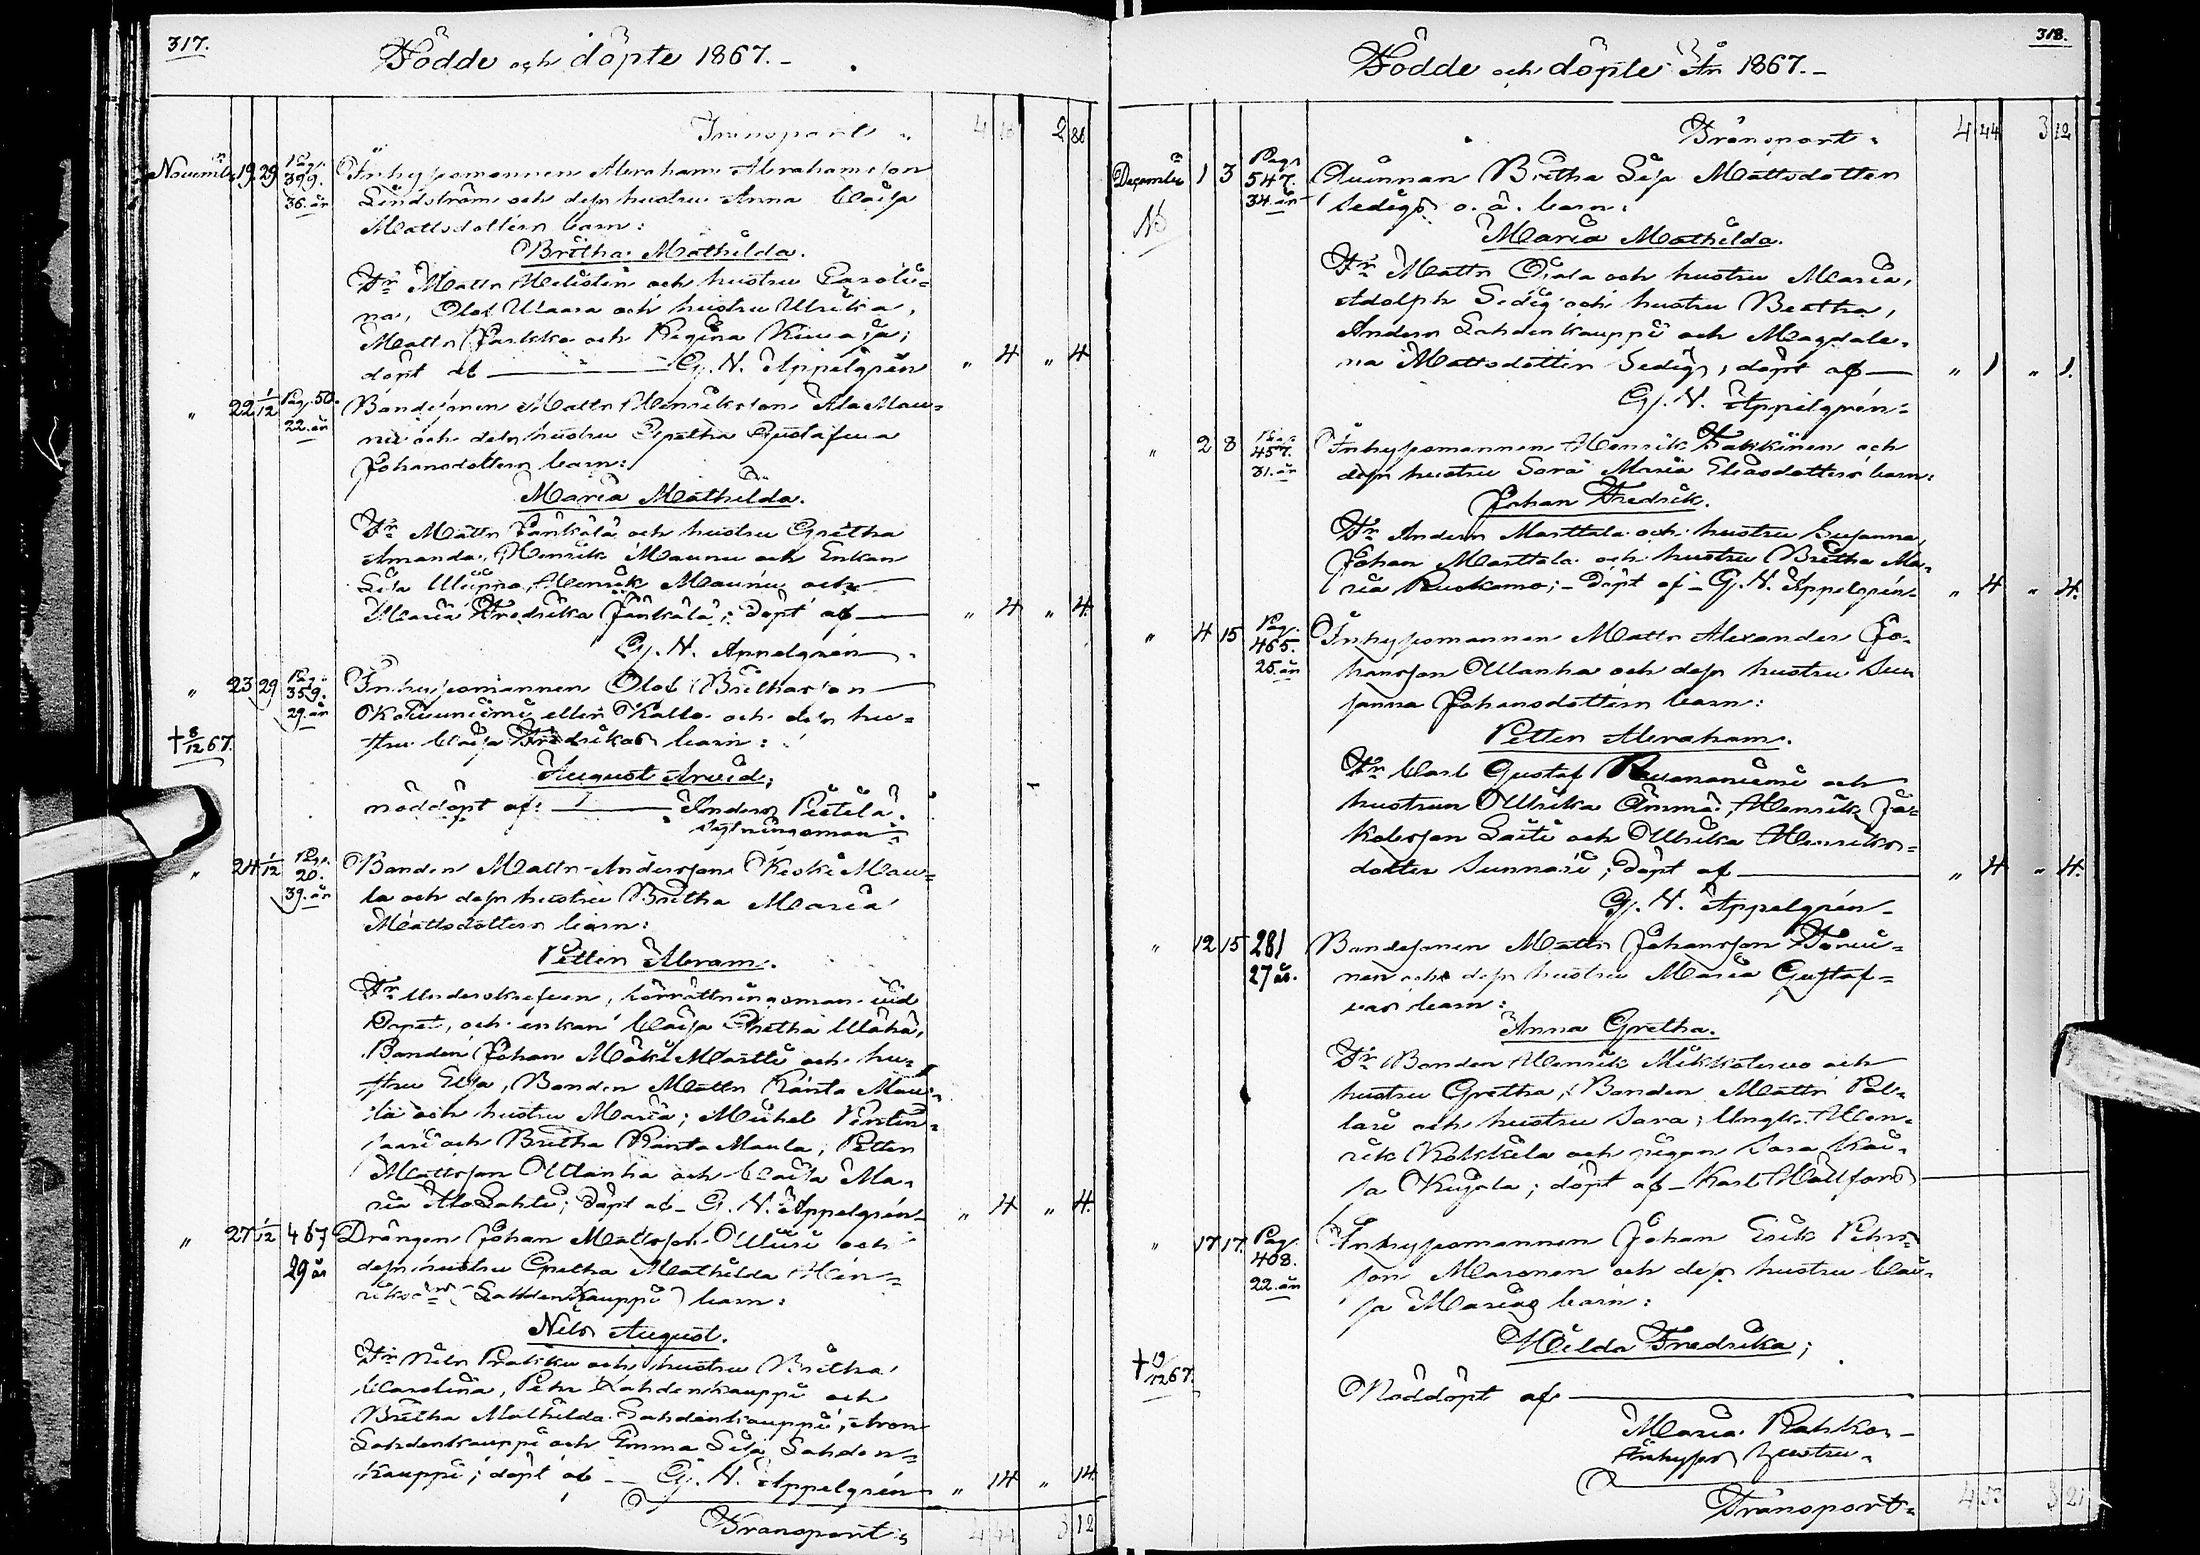 317.
Födde och döpte 1867.-
Transport "
4 16 2 88
November 19 29 Pag. 399. 36. år
Inhysesmannen Abraham Abrahamsson
Lindström och dess hustru Anna Caisa
Mattsdotters barn:
Britha Mathilda.
Fr. Matts Melistén och hustru Caroli-
na, Olof Waara och hustru Ulrika,
Matts Parkka och Regina
döpt af — Gj. N. Appelgrén
" 4 " 4
" 22 1/12 Pag. 50. 22. år
Bondesonen Matts Henriksson Ala Mau-
nu och dess hustru Gretha Gustafva
Johansdotters barn:
Maria Mathilda.
Fr. Matts Jänkälä och hustru Gretha
Amanda, Henrik Maunu och Enkan
Lisa Uleippo, Henrik Maunu och
Maria Fredrika Jänkälä; döpt af —
" 4 " 4.
Gj. N. Appelgrén
" 23 29 Pag. 359. 29. år
Inhysesmannen Olof Brithasson —
Koivuniemi eller Kallo och dess hu-
† 8/12 67.
stru Caisa Fredrikas barn:
August Arvid;
nöddöpt af: — Anders Pietilä.
rotningsman
" 24 1/12 Pag. 20. 39. år
Bonden Matts Andersson Keski Mau-
la och dess hustru Britha Maria
Mattsdotters barn:
Petter Abram.
Fr. Underskrefven, förrättningsman vid
Dopet, och enkan Caisa Gretha Wähä,
Bonden Johan Mäki Martti och hu-
stru Elsa, Bonden Matts Ranta Mau-
la och hustru Maria; Michel Pentin-
saari och Britha Ranta Maula; Petter
Mattsson Ollanha och Caisa Ma-
ria Ala Lahti; döpt af - G. N. Appelgrén
" 4 " 4.
" 27 1/12 467 29 år
Drängen Johan Mattsson Uusi och
dess hustru Gretha Mathilda Hen-
riksdrs (Lahdenkauppi) barn:
Nils August.
Fr. Nils Pratiku och hustru Britha
Carolina, Pehr Lahdenkauppi och
Britha Mathilda Lahdenkauppi, Aron
Lahdenkauppi och Emma Lisa Lahden-
kauppi; döpt af — Gj. N. Appelgrén
" 14 " 14.
Transport:
4 44 3 12
318.
Födde och döpte År 1867.-
Transport:
4 44 3 12
December 1 3 Pag. 547. 34. år
Qvinnan Britha Lisa Mattsdotter
Sedigs o. ä. barn:
Maria Mathilda.
Fr. Matts Ojala och hustru Maria,
Adolph Sedig och hustru Beatha,
Anders Lahdenkauppi och Magdale-
na Mattsdotter Sedig; döpt af —
" 1 " 1.
Gj. N. Appelgrén:
" 2 8 Pag. 457. 31. år
Inhysesmannen Henrik Takkinen och
dess hustru Sara Maria Eliasdotters barn:
Johan Fredrik.
Fr. Anders Marttala och hustru Susanna,
Johan Marttala och hustru Britha Ma-
ria Ruokamo; - döpt af - Gj. N. Appelgrén-
" 4 " 4.
" 4 15 Pag. 465. 25. år
Inhysesmannen Matts Alexander Jo-
hansson Ollanha och dess hustru Su-
sanna Johansdotters barn:
Petter Abraham.
Fr. Carl Gustaf Ruonaniemi och
hustrun Ulrika Emma; Henrik Ja-
kobsson Laiti och Ulrika Henriks-
dotter Sunnari; döpt af —
" 4 " 4.
Gj. N. Appelgrén-
" 12 15 281 27 år.
Bondesonen Matts Johansson Törmä-
nen och dess hustru Maria Gustaf-
vas barn:
Anna Gretha.
Fr. Bonden Henrik Mikkolavuo och
hustru Gretha; Bonden Matts Pal-
lari och hustru Sara; Ungk. Hen-
rik Kokkila och pigan Sara Kai-
sa Kujala; döpt af - Karl Hällfors
" 17 17. Pag. 408. 22. år
Inhysesmannen Johan Erik Pehrs-
son Maronen och dess hustru Cai-
sa Marias barn:
Hilda Fredrika;
† 19/12 67.
Nöddöpt af —
Maria Rahko -
Inhyses hustru.
Transport:
4 53 3 21